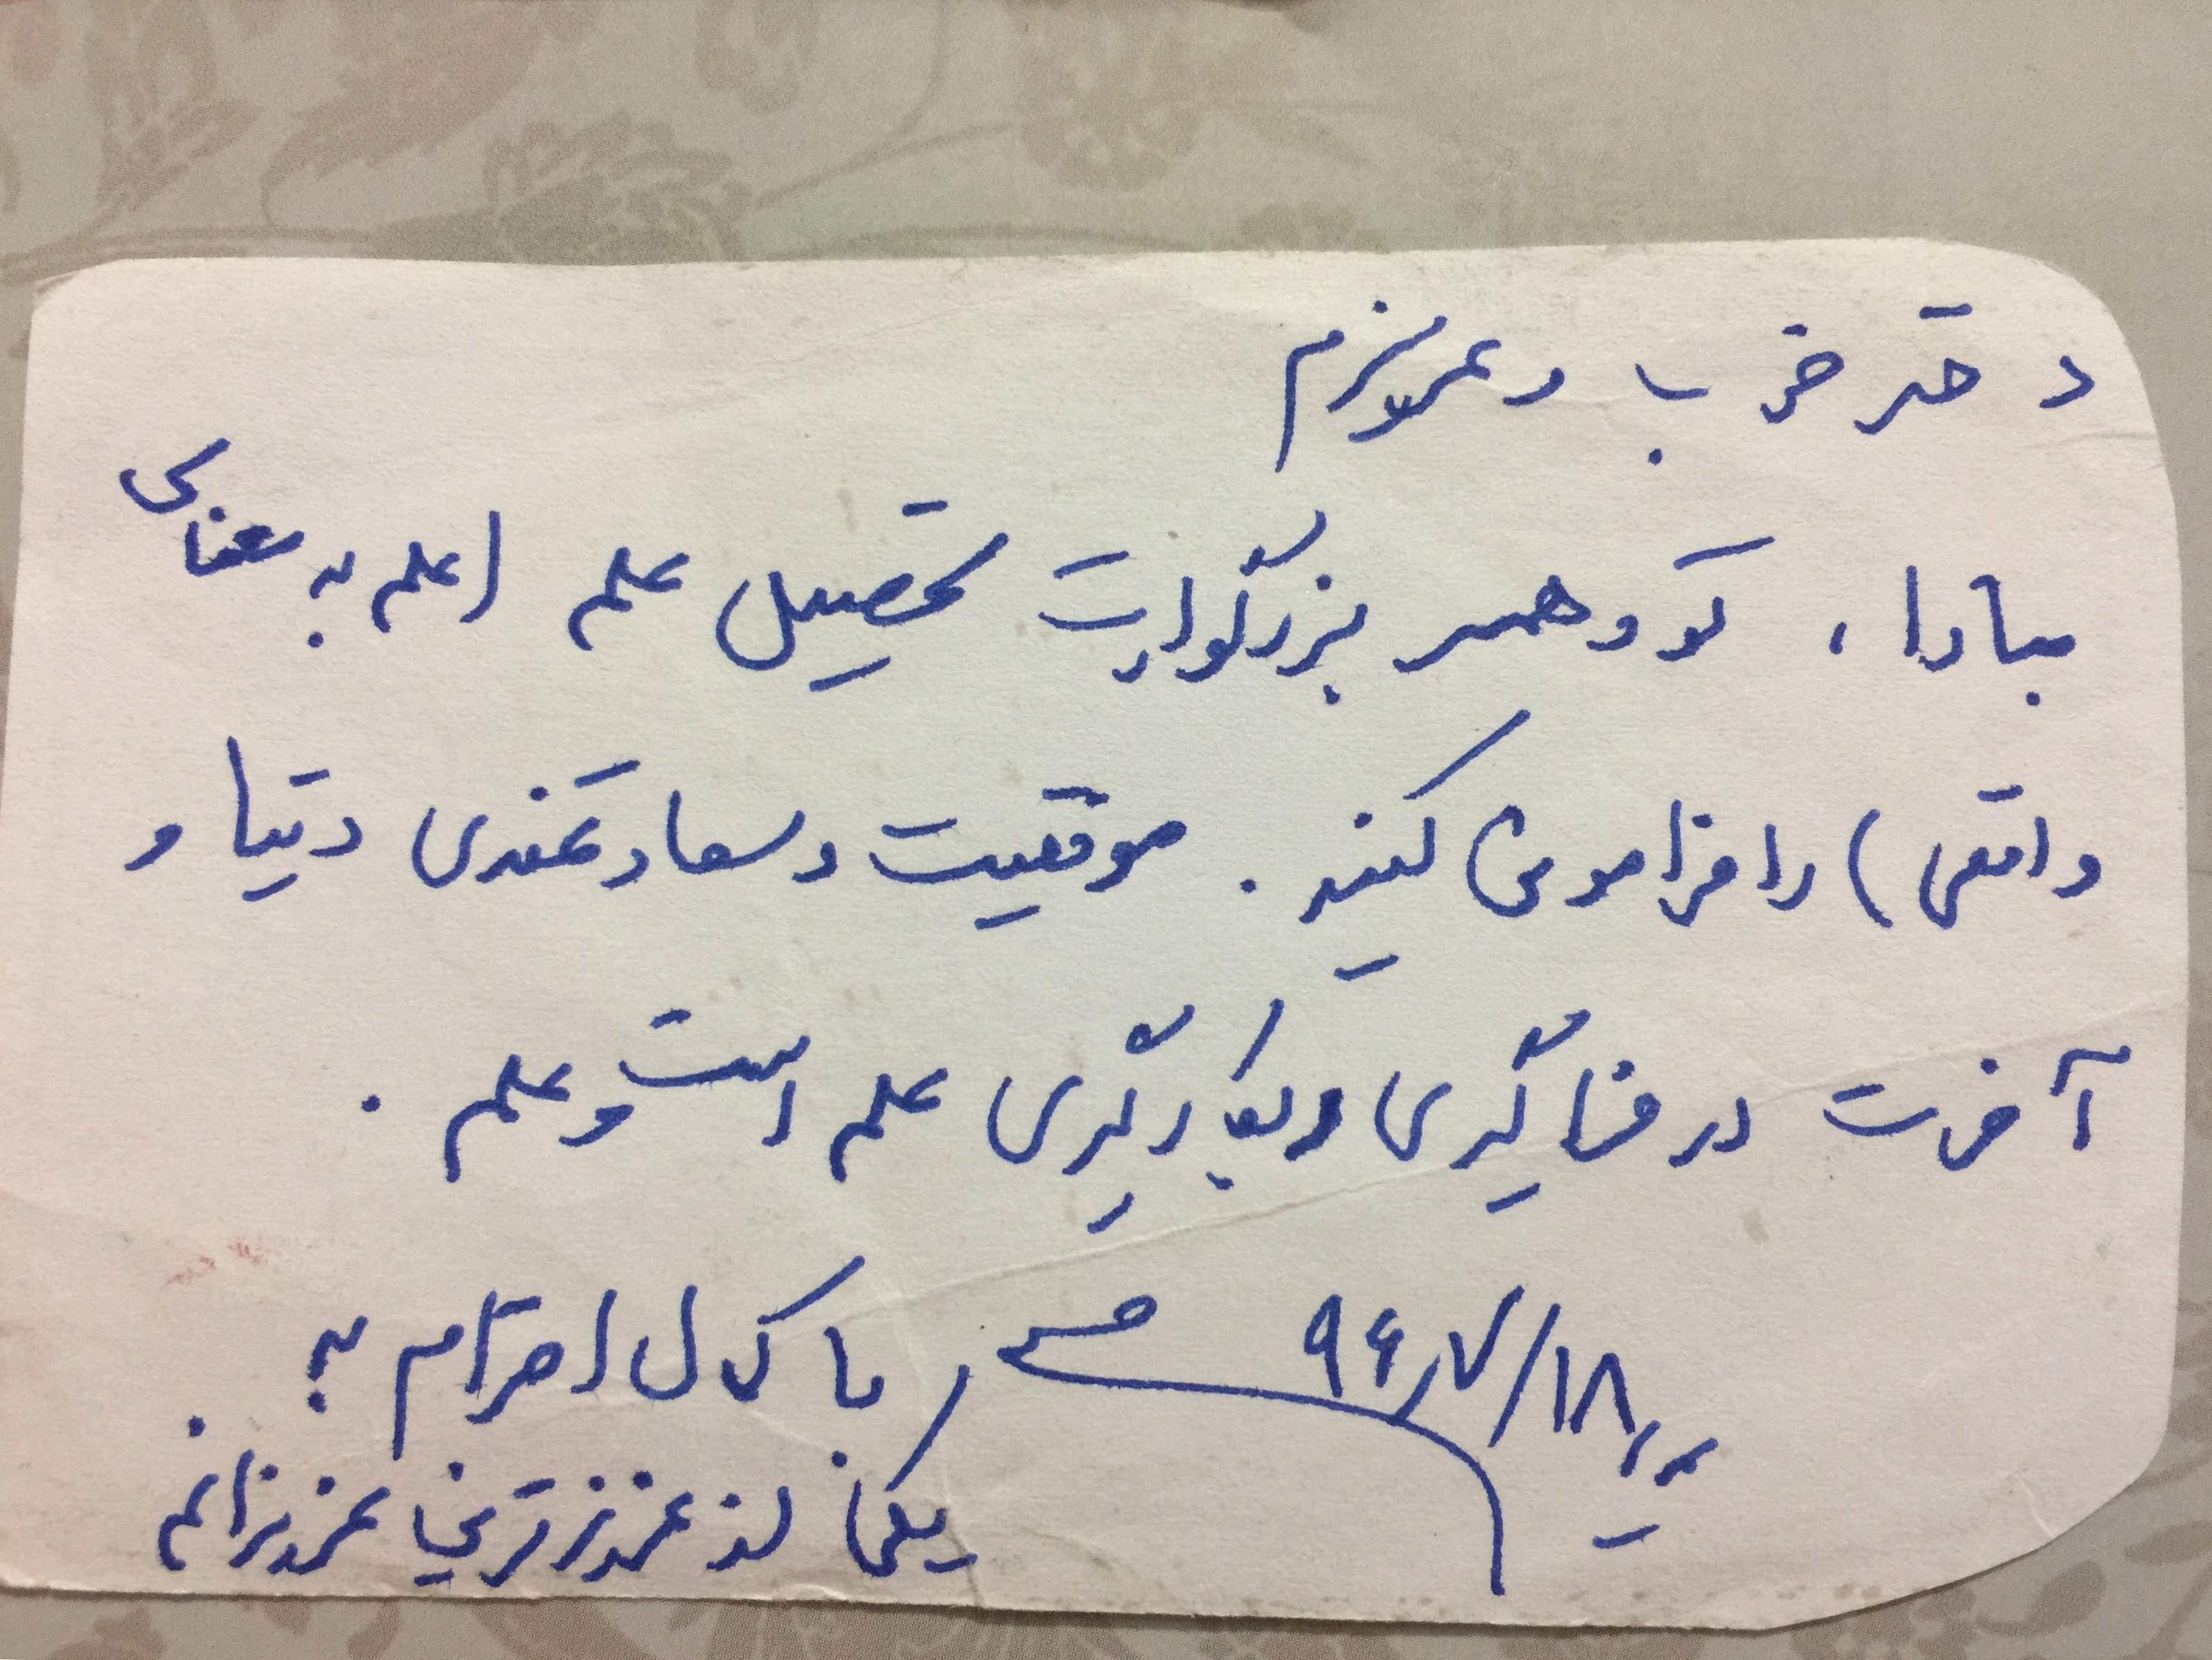 دختر خوب و عزیزم
مبادا، تو و همسر بزرگوارت تحصیل علم (علم به معنای
واقعی) را فراموش کنید. موفقیت و سعادتمندی دنیا و
آخرت در فراگیری و بکارگیری علم است و علم.
۹۶/۷/۱۸ با کمال احترام به
یکی از عزیزترین عزیزانم